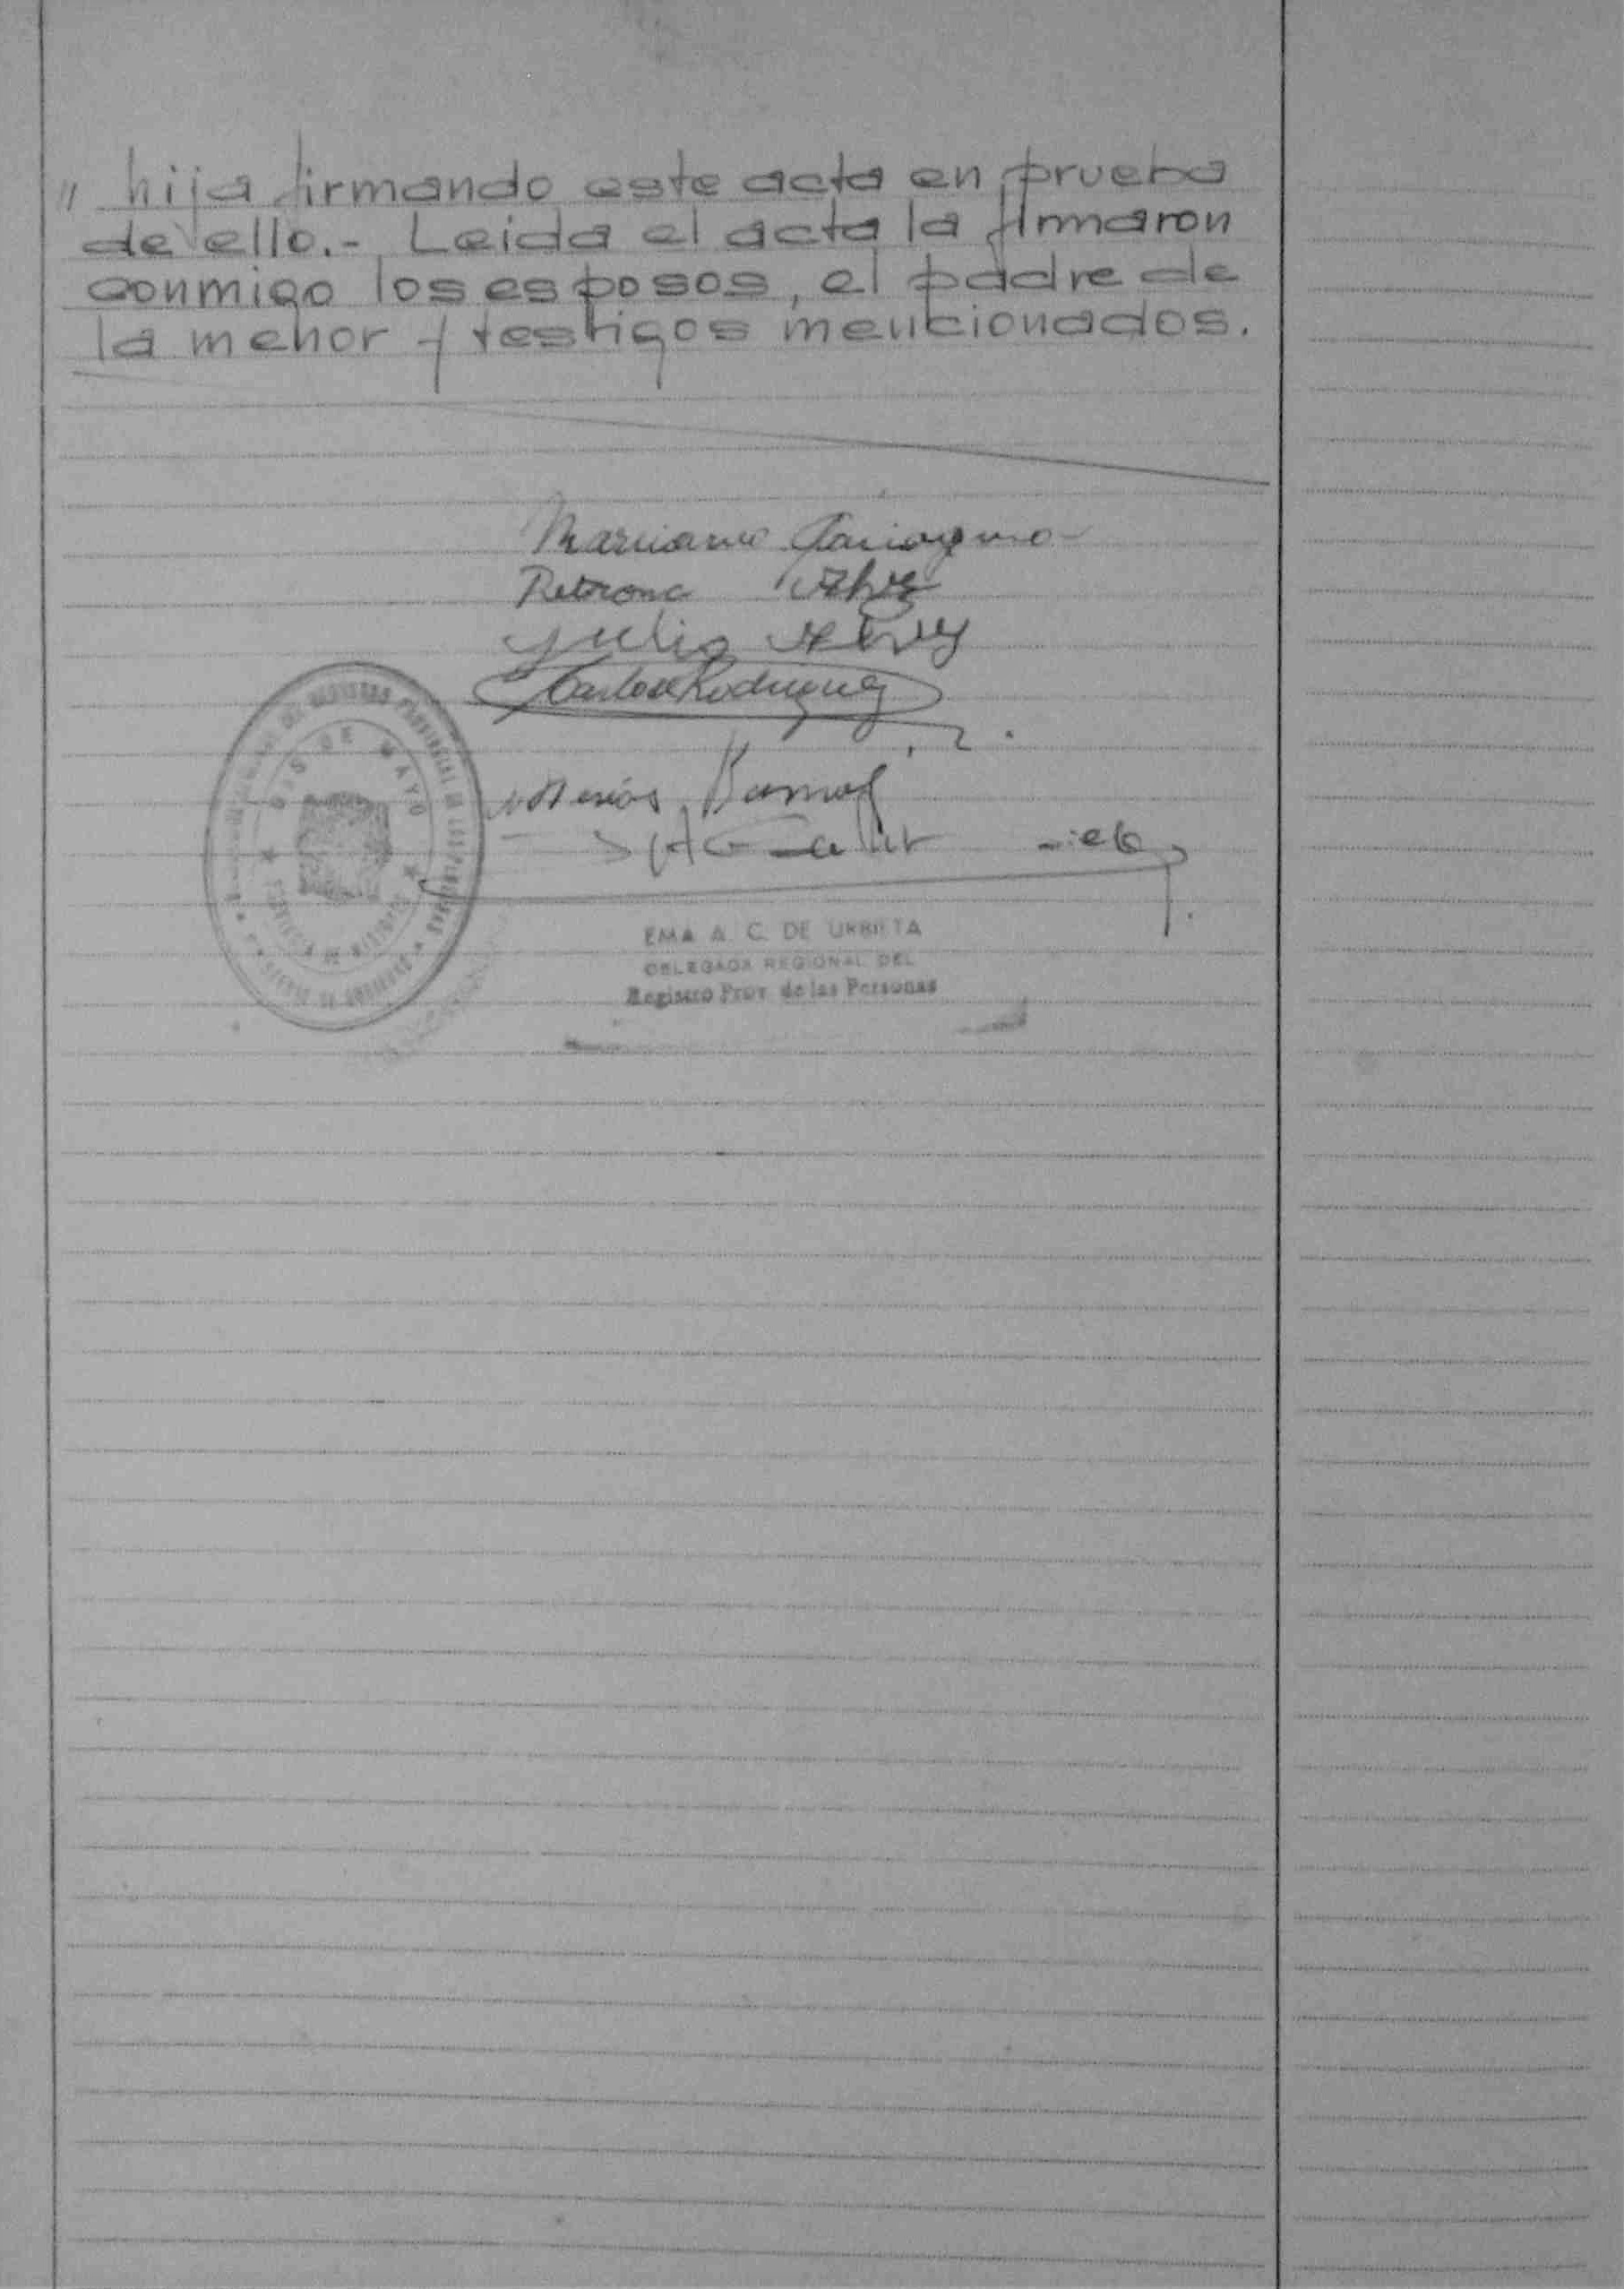 " hija firmando este acta en prueba
de ello.- Leida el acta la firmaron
conmigo los esposos, el padre de
la menor y testigos mencionados.
Marciano
Petrona Alvez
Julio Alvez
Carlos Rodriguez
25 DE MAYO
REGISTRO PROVINCIAL DE LAS PERSONAS
EMA A. C. DE URBIETA
DELEGADA REGIONAL DEL
Registro Prov. de las Personas